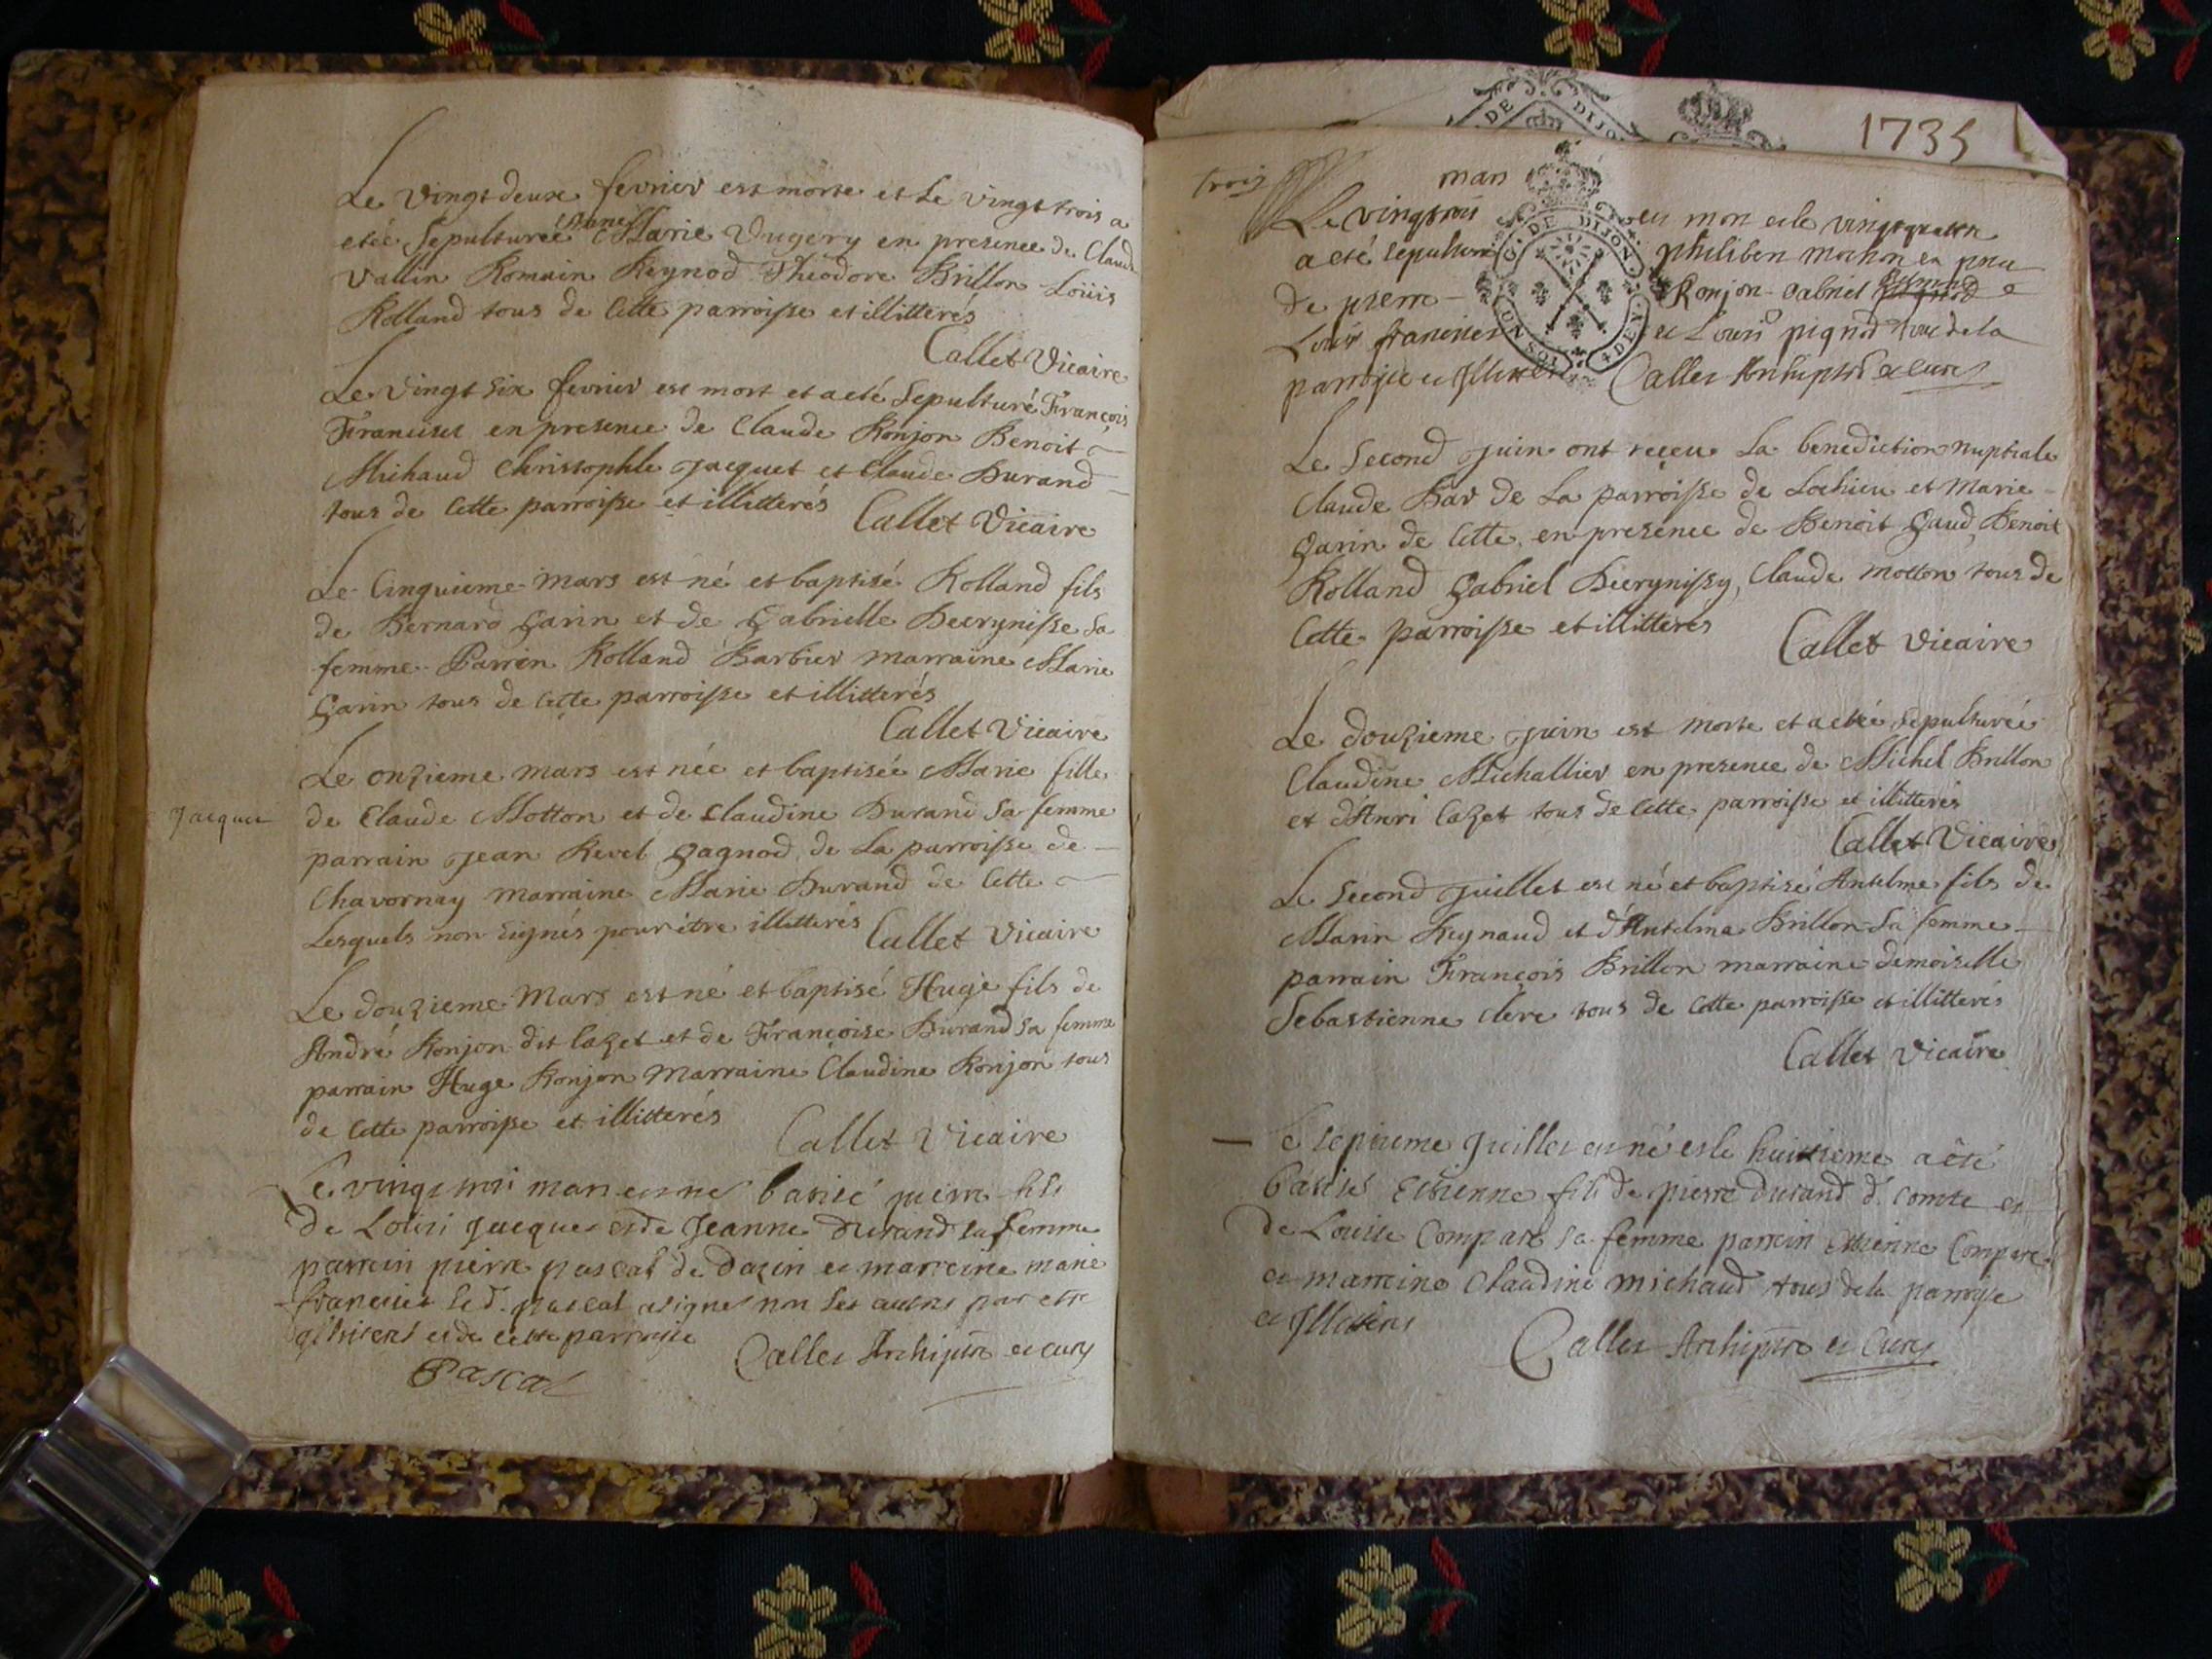 Le vingt deux fevrier est morte et le vingt trois a
etée sepulturée Marie Dugery en presence de Claude
Vallin Romain Reynod Theodore Brillon Loüis
Rolland tous de cette parroisse et illitterés
Callet Vicaire
Le vingt six fevrier est mort et a eté sepulturé François
Franciset en presence de Claude Ronjon Benoit
Michaud Christophle Jacquet et Claude Durand
tous de cette parroisse et illitterés Callet Vicaire
Le cinquieme mars est né et baptisé Rolland fils
de Bernard Garin et de Gabrielle Decrynisse sa
femme Parrin Rolland Barbier marraine Marie
Garin tous de cette parroisse et illitterés
Callet Vicaire
Le onzieme mars est née et baptisée Marie fille
de Claude Motton et de Claudine Durand sa femme
parrain Jean Revel Gagnod de la parroisse de
Chavornay marraine Marie Durand de cette
Lesquels non signés pour être illitterés Callet Vicaire
Le douzieme Mars est né et baptisé Huge fils de
André Ronjon dit Cazet et de Françoise Durand sa femme
parrain Huge Ronjon Marraine Claudine Ronjon tous
de cette parroisse et illitterés
Callet Vicaire
Jacques
Le vingt trois mars est né baptisé pierre fils
de Loüis Jacques et de Jeanne Durand sa femme
parrein pierre pascal de Dazin et marreine marie
franciset le d. pascal a signé non les autres par etre
illiterés et de cette parroisse
Callet Archiptre et curé
Pascal
1735
trois
mars
Le vingtrois est mort et le vingtquatre
a eté sepulturé philibert mochon en
de pierre Ronjon Gabriel
Louis francises et Louis pignod tous de la
parroisse et Illiteres Callet Archiptre et curé
DE DIJON
Le second Juin ont reçeu la benediction nuptiale
Claude Bar de la parroisse de Lochieu et Marie
Garin de cette en presence de Benoit Gaud, Benoit
Rolland Gabriel Decrynissy, Claude motton tous de
cette parroisse et illitterés
Callet Vicaire
Le douzieme Juin est morte et a etée sepulturée
Claudine Michallier en presence de Michel Brillon
et d'Anri Cazet tous de cette parroisse et illitterés
Callet Vicaire
Le second Juillet est né et baptisé Antelme fils de
Marin Reynaud et d'Antelma Brillon sa femme
parrain François Brillon marraine demoiselle
Sebastienne Clere tous de cette parroisse et illitterés
Callet Vicaire
Le septieme Juillet est né et le huittieme a été
batisé Etienne fils de pierre Durand d. comte et
de Louise Compare sa femme parrein Etienne Compare
et marreine Claudine michaud tous de la parroisse
et Illiteres
Callet Archiptre et Curé